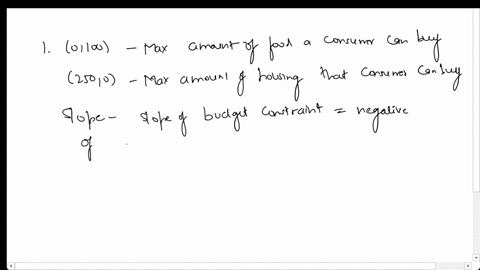 1. (0,100) - Max amount of food a consumer can buy
(250,0) - Max amount of housing that consumer can buy
Slope - slope of budget constraint = negative
of